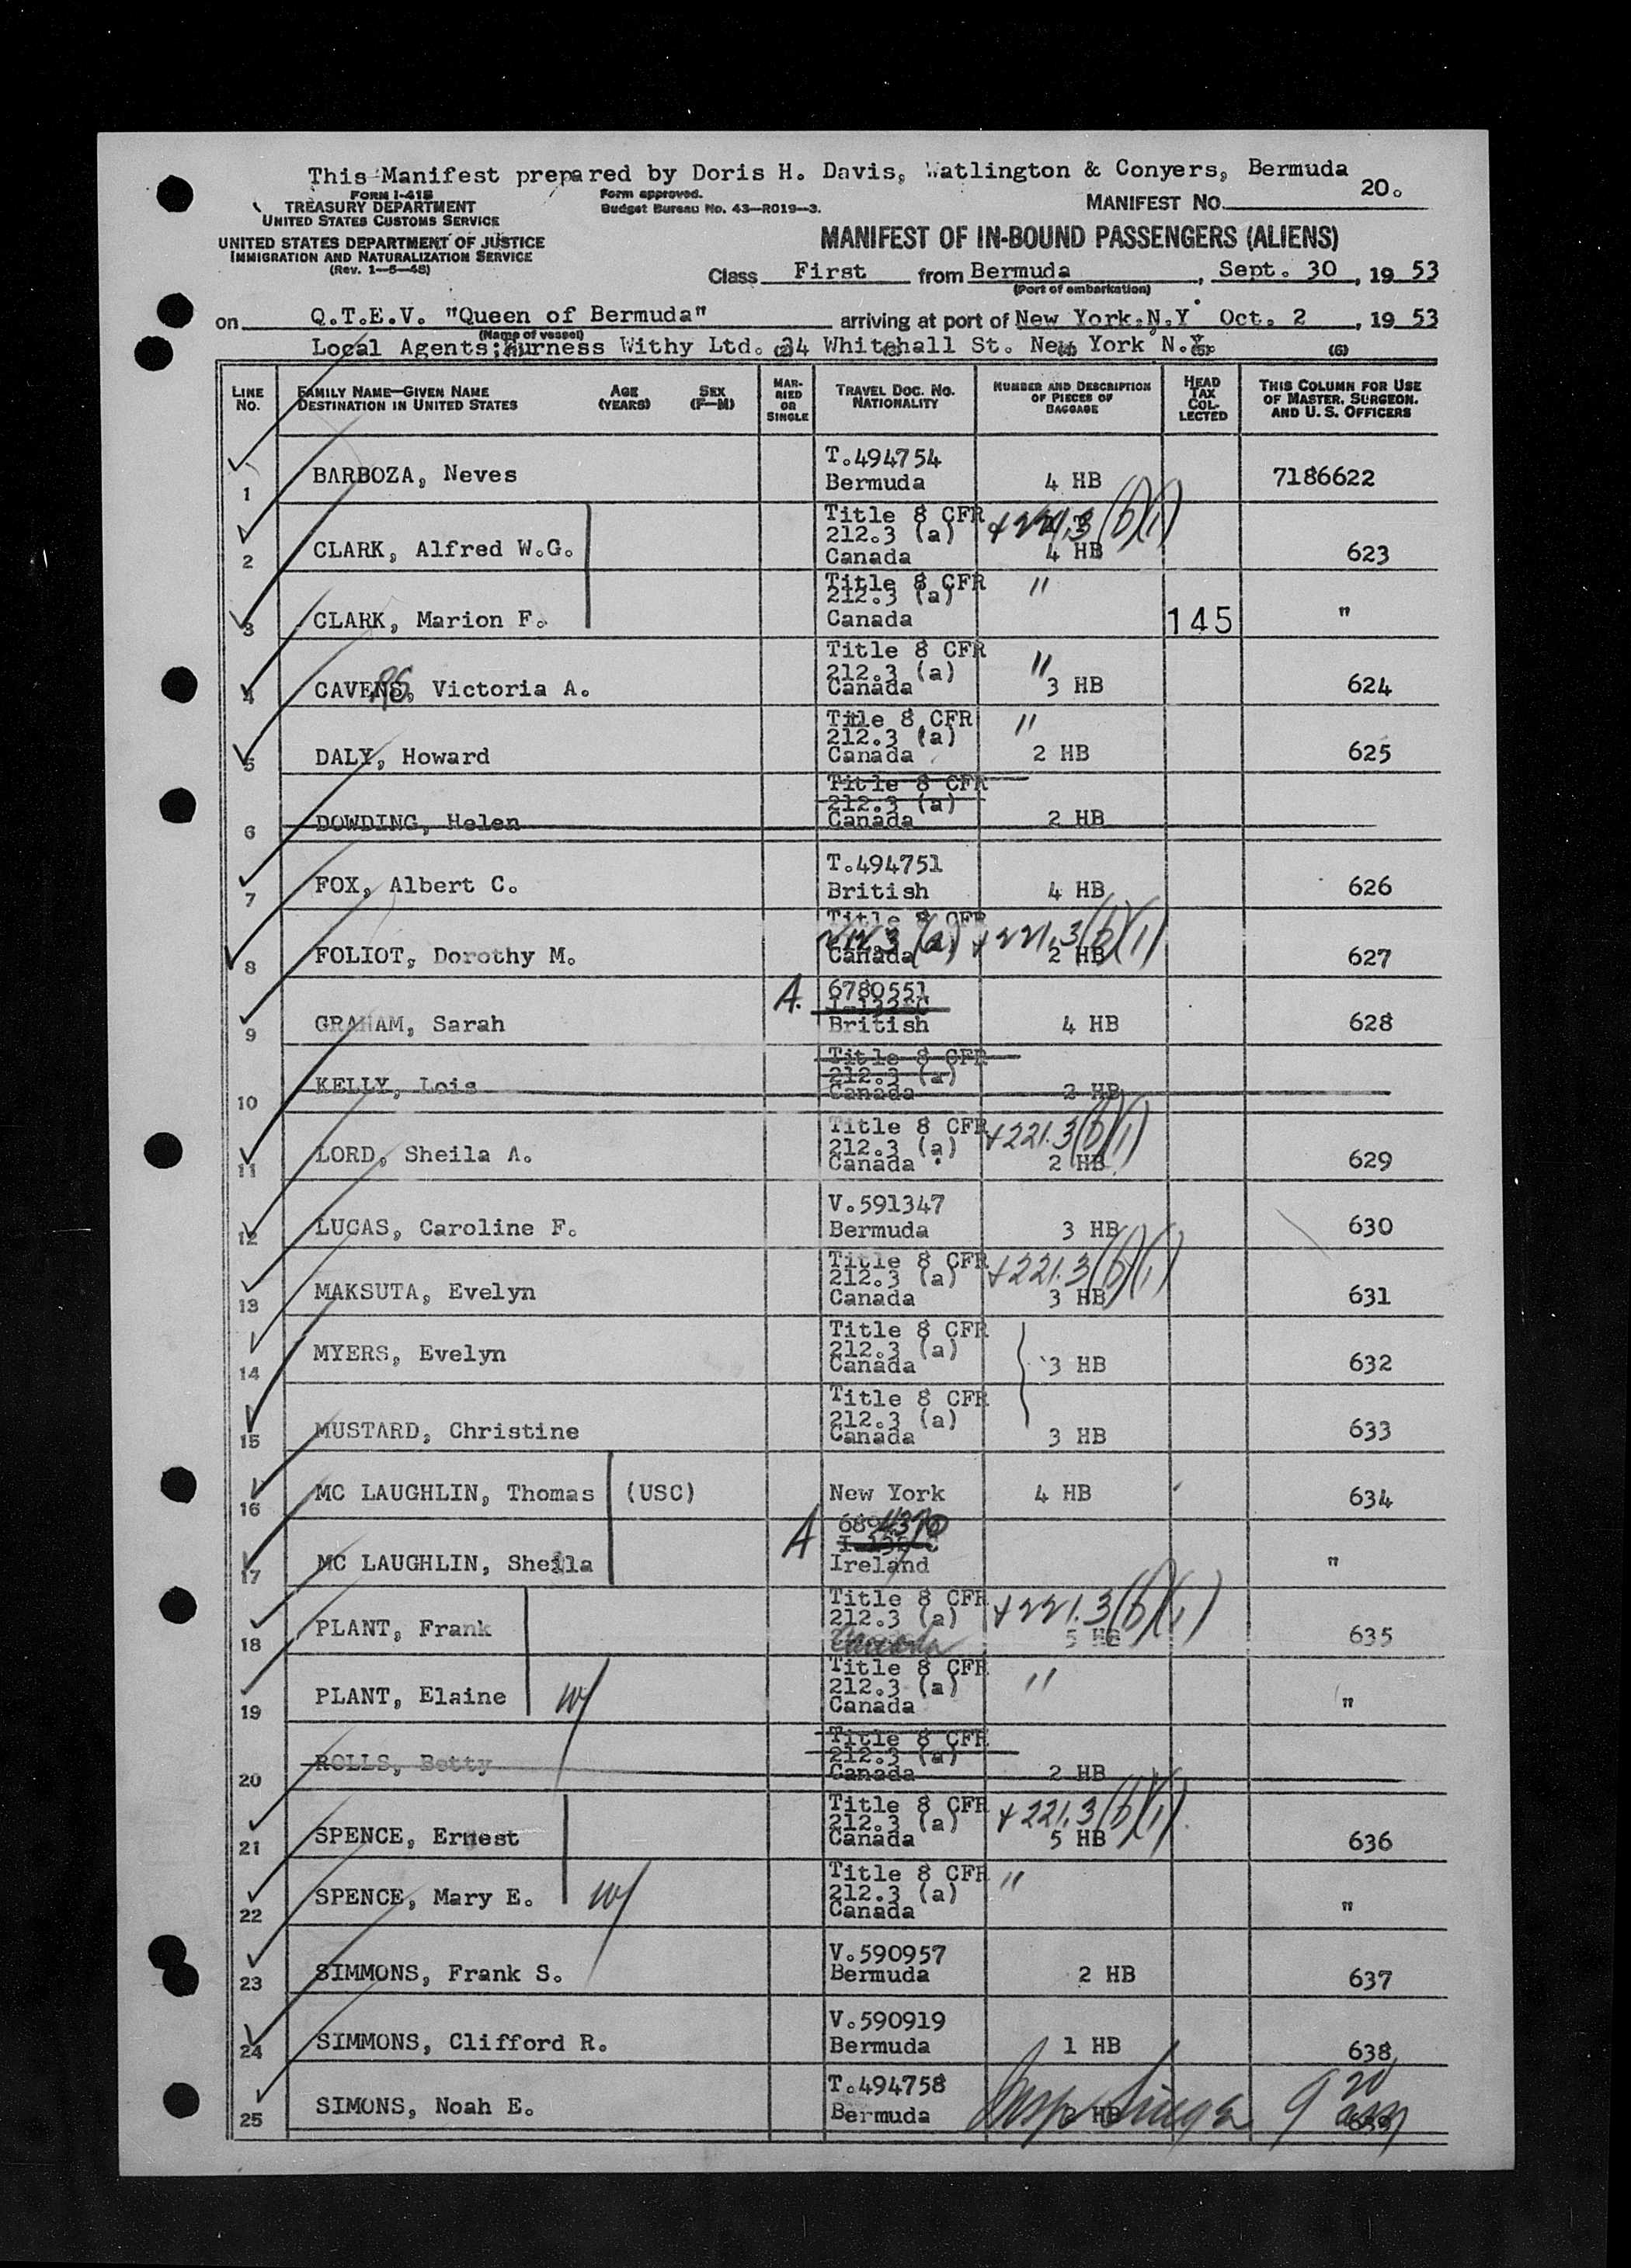 This Manifest prepared by Doris H. Davis, Watlington & Conyers, Bermuda
FORM I-418
TREASURY DEPARTMENT
UNITED STATES CUSTOMS SERVICE
Form approved.
Budget Bureau No. 43-R019-3.
MANIFEST No. 20.
UNITED STATES DEPARTMENT OF JUSTICE
IMMIGRATION AND NATURALIZATION SERVICE
(Rev. 1-5-48)
MANIFEST OF IN-BOUND PASSENGERS (ALIENS)
Class First from Bermuda, Sept. 30, 1953
(Port of embarkation)
on Q.T.E.V. "Queen of Bermuda" arriving at port of New York.N.Y Oct. 2, 1953
(Name of vessel)
Local Agents; Furness Withy Ltd. 34 Whitehall St. New York N.Y.
(2) (3) (4) (5) (6)
LINE No. FAMILY NAME—GIVEN NAME DESTINATION IN UNITED STATES AGE (YEARS) SEX (F-M) MARRIED OR SINGLE TRAVEL DOC. NO. NATIONALITY NUMBER AND DESCRIPTION OF PIECES OF BAGGAGE HEAD TAX COLLECTED THIS COLUMN FOR USE OF MASTER, SURGEON, AND U. S. OFFICERS
T.494754
1 BARBOZA, Neves Bermuda 4 HB 7186622
Title 8 CFR + 221.3(b)(1)
212.3 (a)
2 CLARK, Alfred W.G. Canada 4 HB 623
Title 8 CFR "
212.3 (a)
3 CLARK, Marion F. Canada 145 "
Title 8 CFR "
212.3 (a)
4 CAVENS, Victoria A. Canada 3 HB 624
Title 8 CFR "
212.3 (a)
5 DALY, Howard Canada 2 HB 625
Title 8 CFR
212.3 (a)
6 DOWDING, Helen Canada 2 HB
T.494751
7 FOX, Albert C. British 4 HB 626
Title 8 CFR
212.3 (a) + 221.3(b)(1)
8 FOLIOT, Dorothy M. Canada 2 HB 627
A. 6780551
I-132-C
9 GRAHAM, Sarah British 4 HB 628
Title 8 CFR
212.3 (a)
10 KELLY, Lois Canada 2 HB
Title 8 CFR + 221.3(b)(1)
212.3 (a)
11 LORD, Sheila A. Canada 2 HB 629
V.591347
12 LUCAS, Caroline F. Bermuda 3 HB 630
Title 8 CFR + 221.3(b)(1)
212.3 (a)
13 MAKSUTA, Evelyn Canada 3 HB 631
Title 8 CFR
212.3 (a)
14 MYERS, Evelyn Canada 3 HB 632
Title 8 CFR
212.3 (a)
15 MUSTARD, Christine Canada 3 HB 633
16 MC LAUGHLIN, Thomas (USC) New York 4 HB 634
A
17 MC LAUGHLIN, Sheila Ireland "
Title 8 CFR + 221.3(b)(1)
212.3 (a)
18 PLANT, Frank Canada 5 HB 635
Title 8 CFR "
212.3 (a)
19 PLANT, Elaine w/ Canada "
Title 8 CFR
212.3 (a)
20 ROLLS, Betty Canada 2 HB
Title 8 CFR + 221.3(b)(1)
212.3 (a)
21 SPENCE, Ernest Canada 5 HB 636
Title 8 CFR "
212.3 (a)
22 SPENCE, Mary E. w/ Canada "
V.590957
23 SIMMONS, Frank S. Bermuda 2 HB 637
V.590919
24 SIMMONS, Clifford R. Bermuda 1 HB 638
T.494758
25 SIMONS, Noah E. Bermuda HB 639
9 20 am